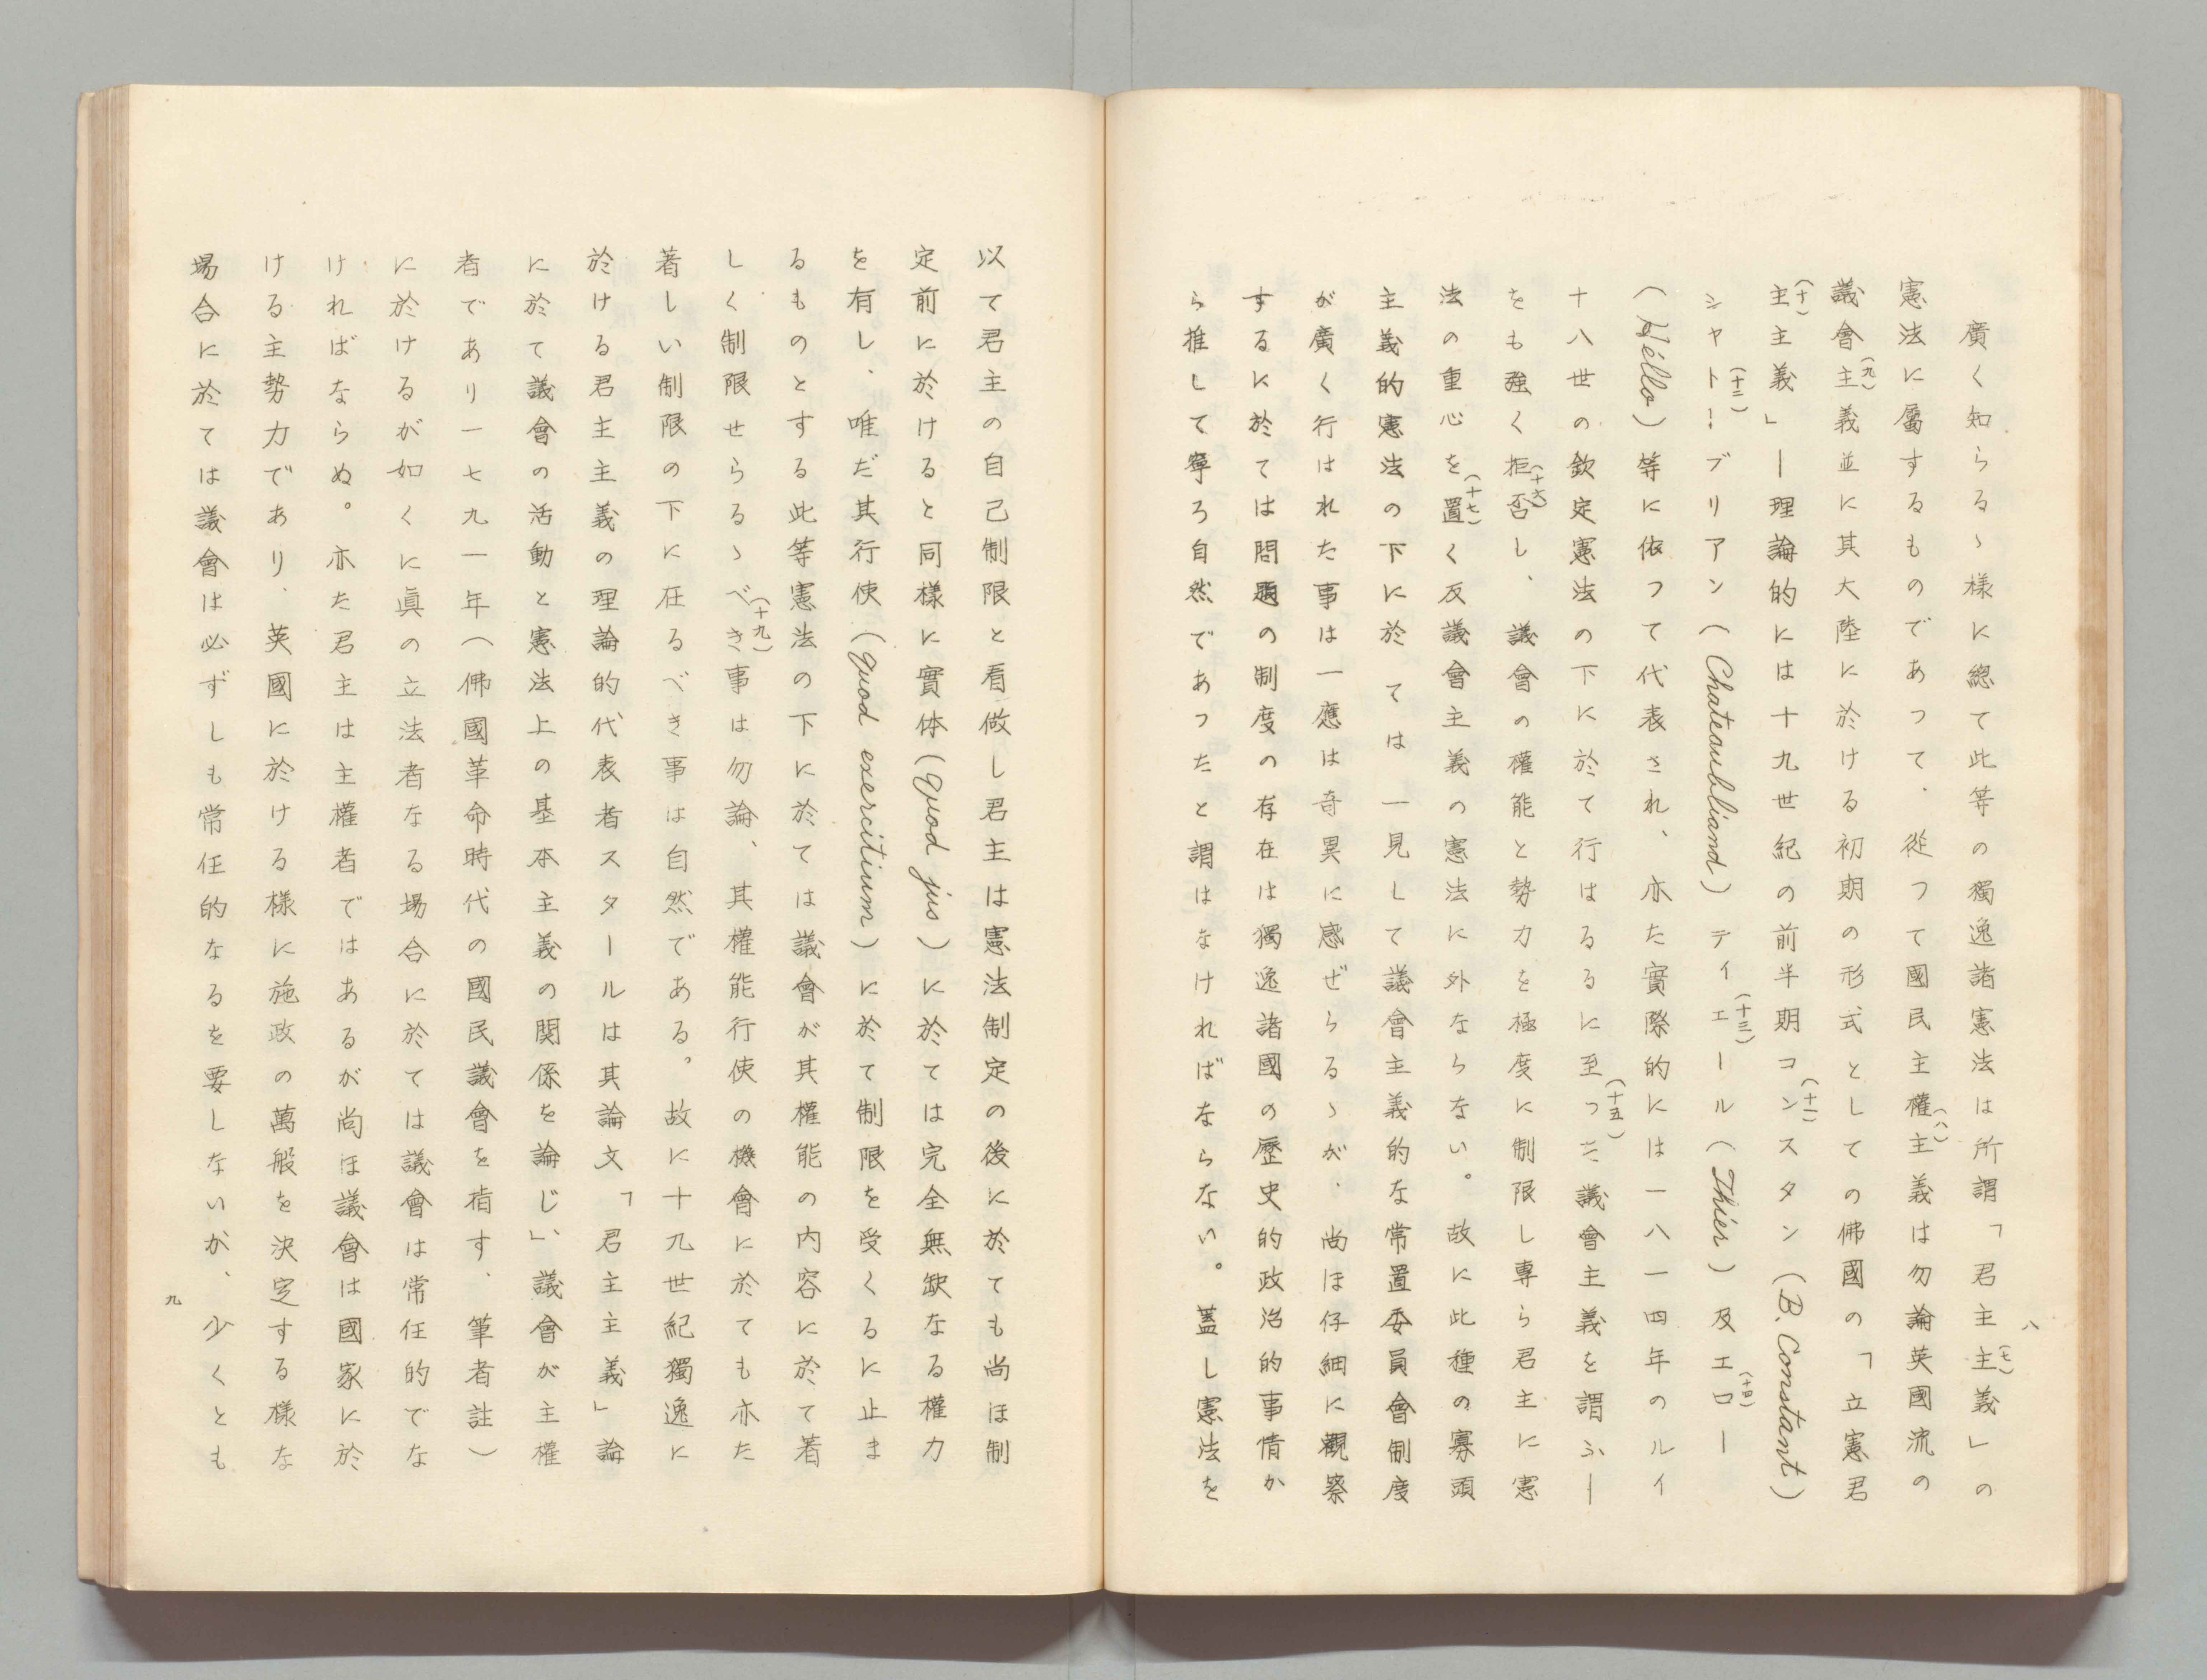 八
廣く知らるゝ樣に總て此等の獨逸諸憲法は所謂「君主主義」の(七)
憲法に屬するものであつて、從つて國民主權主義は勿論英國流の(八)
議會主義並に其大陸に於ける初期の形式としての佛國の「立憲君(九)
主主義」―理論的には十九世紀の前半期コンスタン(B. Constant)(十)(十一)
シャトーブリアン(Chateaubliand)ティエール(Thiér)及エロー(十二)(十三)(十四)
(Héllo)等に依つて代表され、亦た實際的には一八一四年のルイ
十八世の欽定憲法の下に於て行はるるに至つた議會主義を謂ふ―(十五)
をも強く拒否し、議會の權能と勢力を極度に制限し專ら君主に憲(十六)
法の重心を置く反議會主義の憲法に外ならない。故に此種の寡頭(十七)
主義的憲法の下に於ては一見して議會主義的な常置委員會制度
が廣く行はれた事は一應は奇異に感ぜらるゝが、尚ほ仔細に觀察
するに於ては問題の制度の存在は獨逸諸國の歷史的政治的事情か
ら推して寧ろ自然であつたと謂はなければならない。蓋し憲法を
以て君主の自己制限と看做し君主は憲法制定の後に於ても尚ほ制
定前に於けると同樣に實体(quod jus)に於ては完全無缺なる權力
を有し、唯だ其行使(quod exercitium)に於て制限を受くるに止ま
るものとする此等憲法の下に於ては議會が其權能の内容に於て著
しく制限せらるゝべき事は勿論、其權能行使の機會に於ても亦た(十九)
著しい制限の下に在るべき事は自然である。故に十九世紀獨逸に
於ける君主主義の理論的代表者スタールは其論文「君主主義」論
に於て議會の活動と憲法上の基本主義の関係を論じ」、議會が主權
者であり一七九一年(佛國革命時代の國民議會を指す、筆者註)
に於けるが如くに眞の立法者なる場合に於ては議會は常任的でな
ければならぬ。亦た君主は主權者ではあるが尚ほ議會は國家に於
ける主勢力であり、英國に於ける樣に施政の萬般を決定する樣な
場合に於ては議會は必ずしも常任的なるを要しないが、少くとも
九